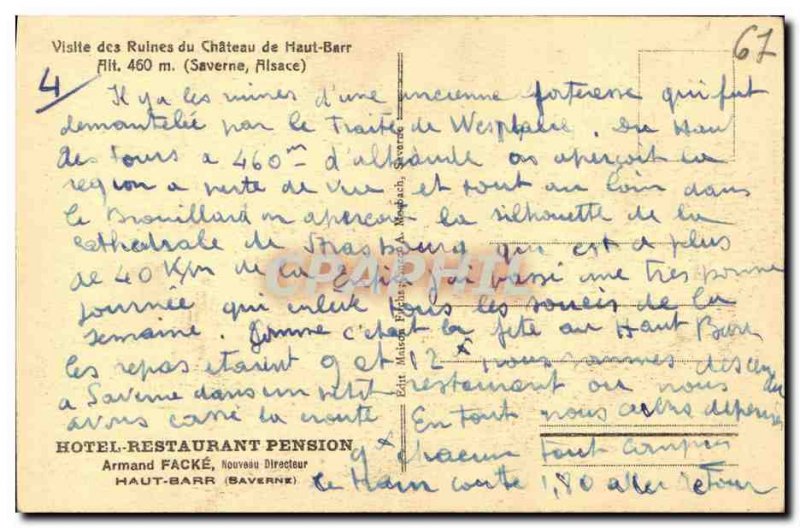 Visite des Ruines du Château de Haut-Barr
Alt. 460 m. (Saverne, Alsace)
67
4
Il y a les ruines d'une ancienne forteresse qui fut
demantelée par le Traité de Westphalie. Du Haut
des Tours a 460m d'altitude on aperçoit la
region a perte de vue et tout au loin dans
le Brouillard on aperçoit la silhouette de la
cathédrale de Strasbourg qui est a plus
de 40 Km de la. Enfin j'ai passé une tres bonne
journée qui enleve tous les soucis de la
semaine. Comme c'etait la fete au Haut Barr
les repas etaient 9 et 12x nous sommes descendu
a Saverne dans un petit restaurant ou nous
avons cassé la croute En tout nous avons depensé
9x chacun tout compris
le train coute 1,80 aller retour
HOTEL-RESTAURANT PENSION
Armand FACKÉ, Nouveau Directeur
HAUT-BARR (SAVERNE)
Edit Maison Saverne
CPAPHIL